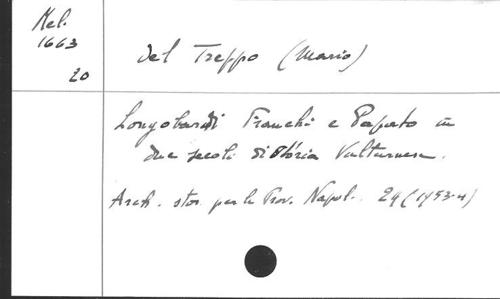 Mel.
1663
20
Del Treppo (Mario)
Longobardi Franchi e Papato in
due secoli di storia Vulturnese.
Arch. stor. per le Prov. Napol. 24 (1953-4)